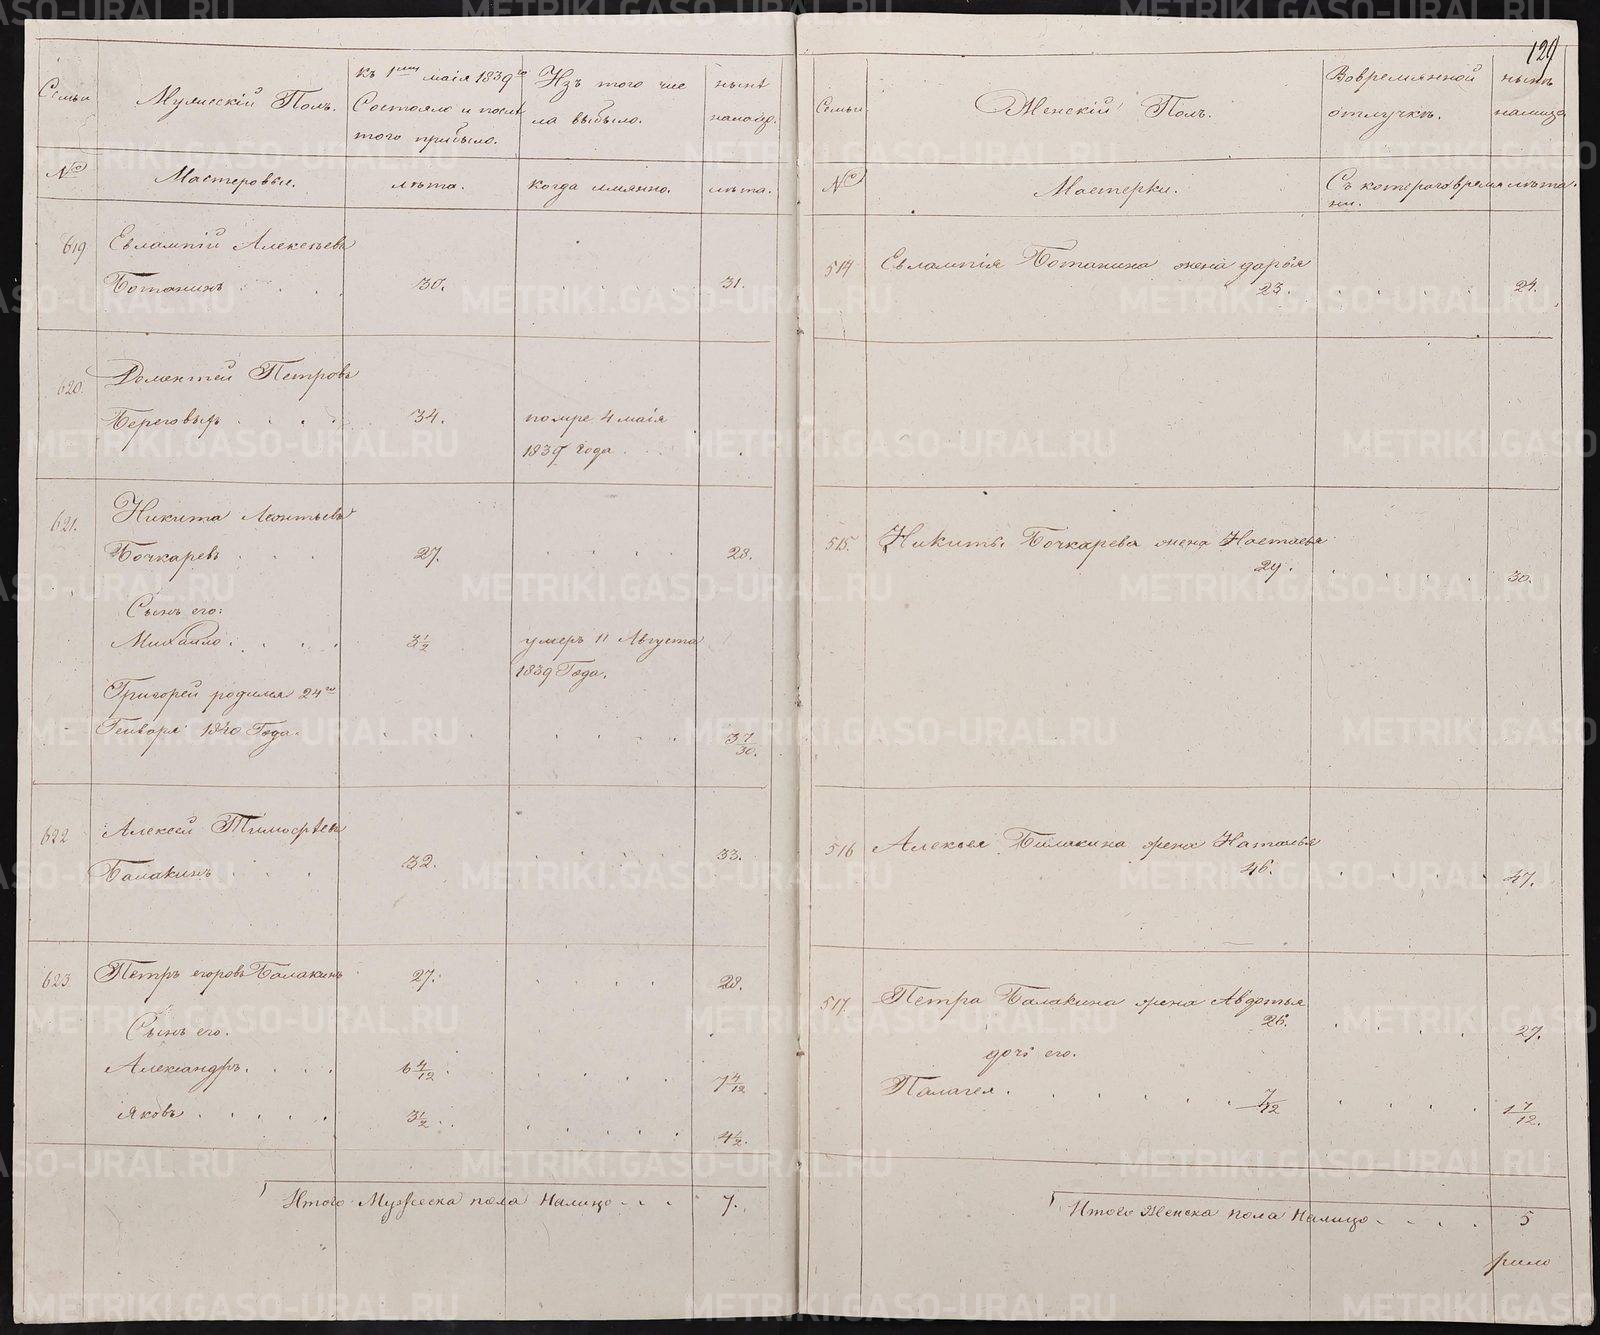 129
Семьи
Мужескій Полъ.
къ 1му маія 1839го
Состояло и послѣ
того прибыло.
Изъ того чис
ла выбыло.
нынѣ
налицо.
№
Мастеровые.
лѣта.
когда имянно.
лѣта.
619
Евлампій Алексѣевъ
Ботанинъ . . . .
30.
31.
620.
Доментей Петровъ
Береговыхъ . . . .
34.
помре 4 маія
1839 года
621.
Никита Леонтьевъ
Бочкаревъ . . .
27.
28.
Сынъ его:
Михаило . . . .
3 1/2
умеръ 11 Августа
1839 Года.
Григорей родился 24го
Генваря 1840 Года.
37/30.
622
Алексей Тимофѣевъ
Балакинъ . . .
32.
33.
623.
Петръ егоровъ Балакинъ
27.
28.
Сынъ его.
Александръ. . . .
6 4/12
7 4/12
Яковъ . . . . .
3 1/2
4 1/2.
Итого Мужеска пола Налицо . . .
7.
Семьи
Женскій Полъ.
Вовремянной
отлучкѣ.
нынѣ
налицо
№
Мастерки.
Съ котораго время
ни.
лѣта.
514
Евлампія Ботанина жена дарья
23.
24.
515.
Никиты Бочкарева жена Настасья
29.
30.
516
Алексея Балакина жена Наталья
46.
47.
517.
Петра Балакина жена Авдотья
26.
27.
дочь его.
Палагея .
7/12
1 7/12.
Итого Женска пола Налицо . . . .
5